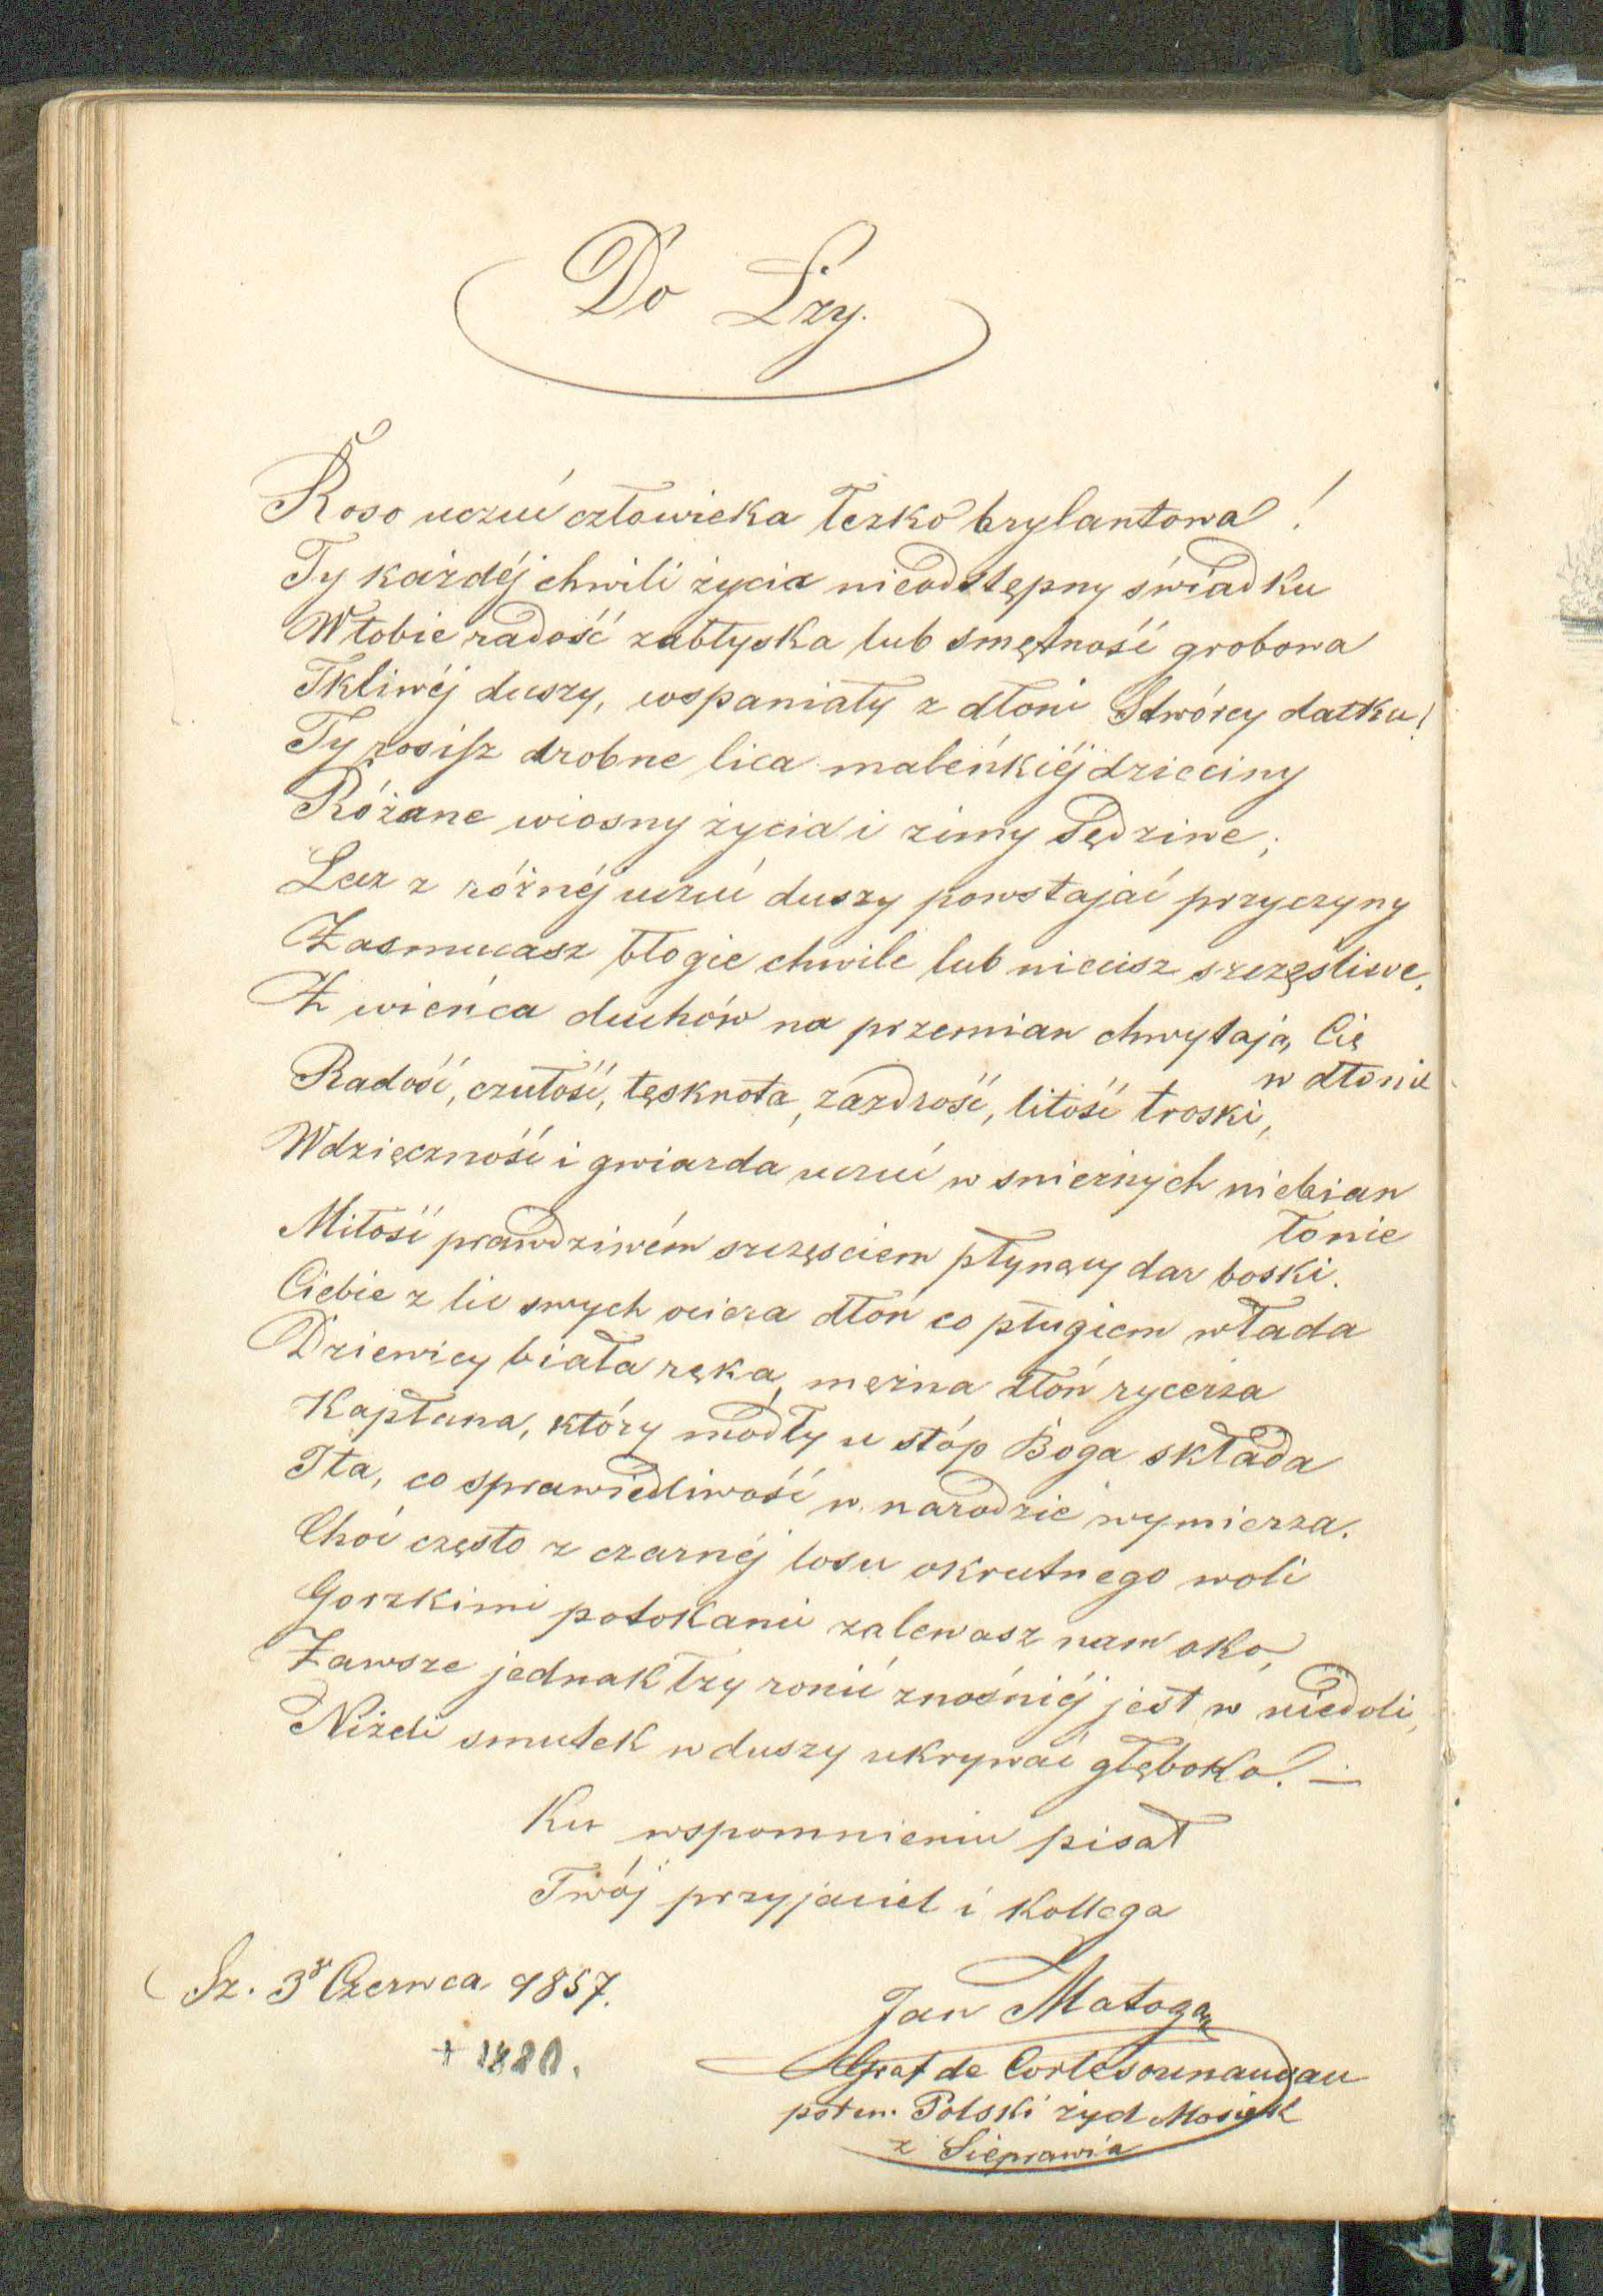 Do Łzy.
Roso uczuć człowieka łezko brylantowa!
Ty każdéj chwili życia nieodstępny świadku
W tobie radość zabłyska lub smętność grobowa
Tkliwéj duszy, wspaniały z dłoni Stwórcy datku!
Ty rosisz drobne lica maleńkiéj dzieciny
Różane wiosny życia i zimy sędziwe;
Lecz z różnéj uczuć duszy powstajać przyczyny
Zasmucasz błogie chwile lub niecisz szczęśliwe.
Z wieńca duchów na przemian chwytają Cię
w dłonie
Radość, czułość, tęsknota, zazdrość, litość troski,
Wdzięczność i gwiazda uczuć w snieżnych niebian
łonie
Miłość prawdziwém szczęsciem płynący dar boski.
Ciebie z lic swych ociera dłoń co pługiem włada
Dziewicy biała ręka, mężna dłoń rycerza
Kapłana, który modły u stóp Boga składa
I ta, co sprawiedliwość w narodzie wymierza.
Choć często z czarnéj losu okrutnego woli
Gorzkimi potokami zalewasz nam oko,
Zawsze jednak łzy ronić znośniéj jest w niedoli,
Niżeli smutek w duszy ukrywać głęboko! —
Ku wspomnieniu pisał
Twój przyjaciel i Kollega
Sz. 3go Czerwca 1857.
+ 1880.
Jan Matoga
Graf de
potem Polski żyd Mosiek
z Sieprawia